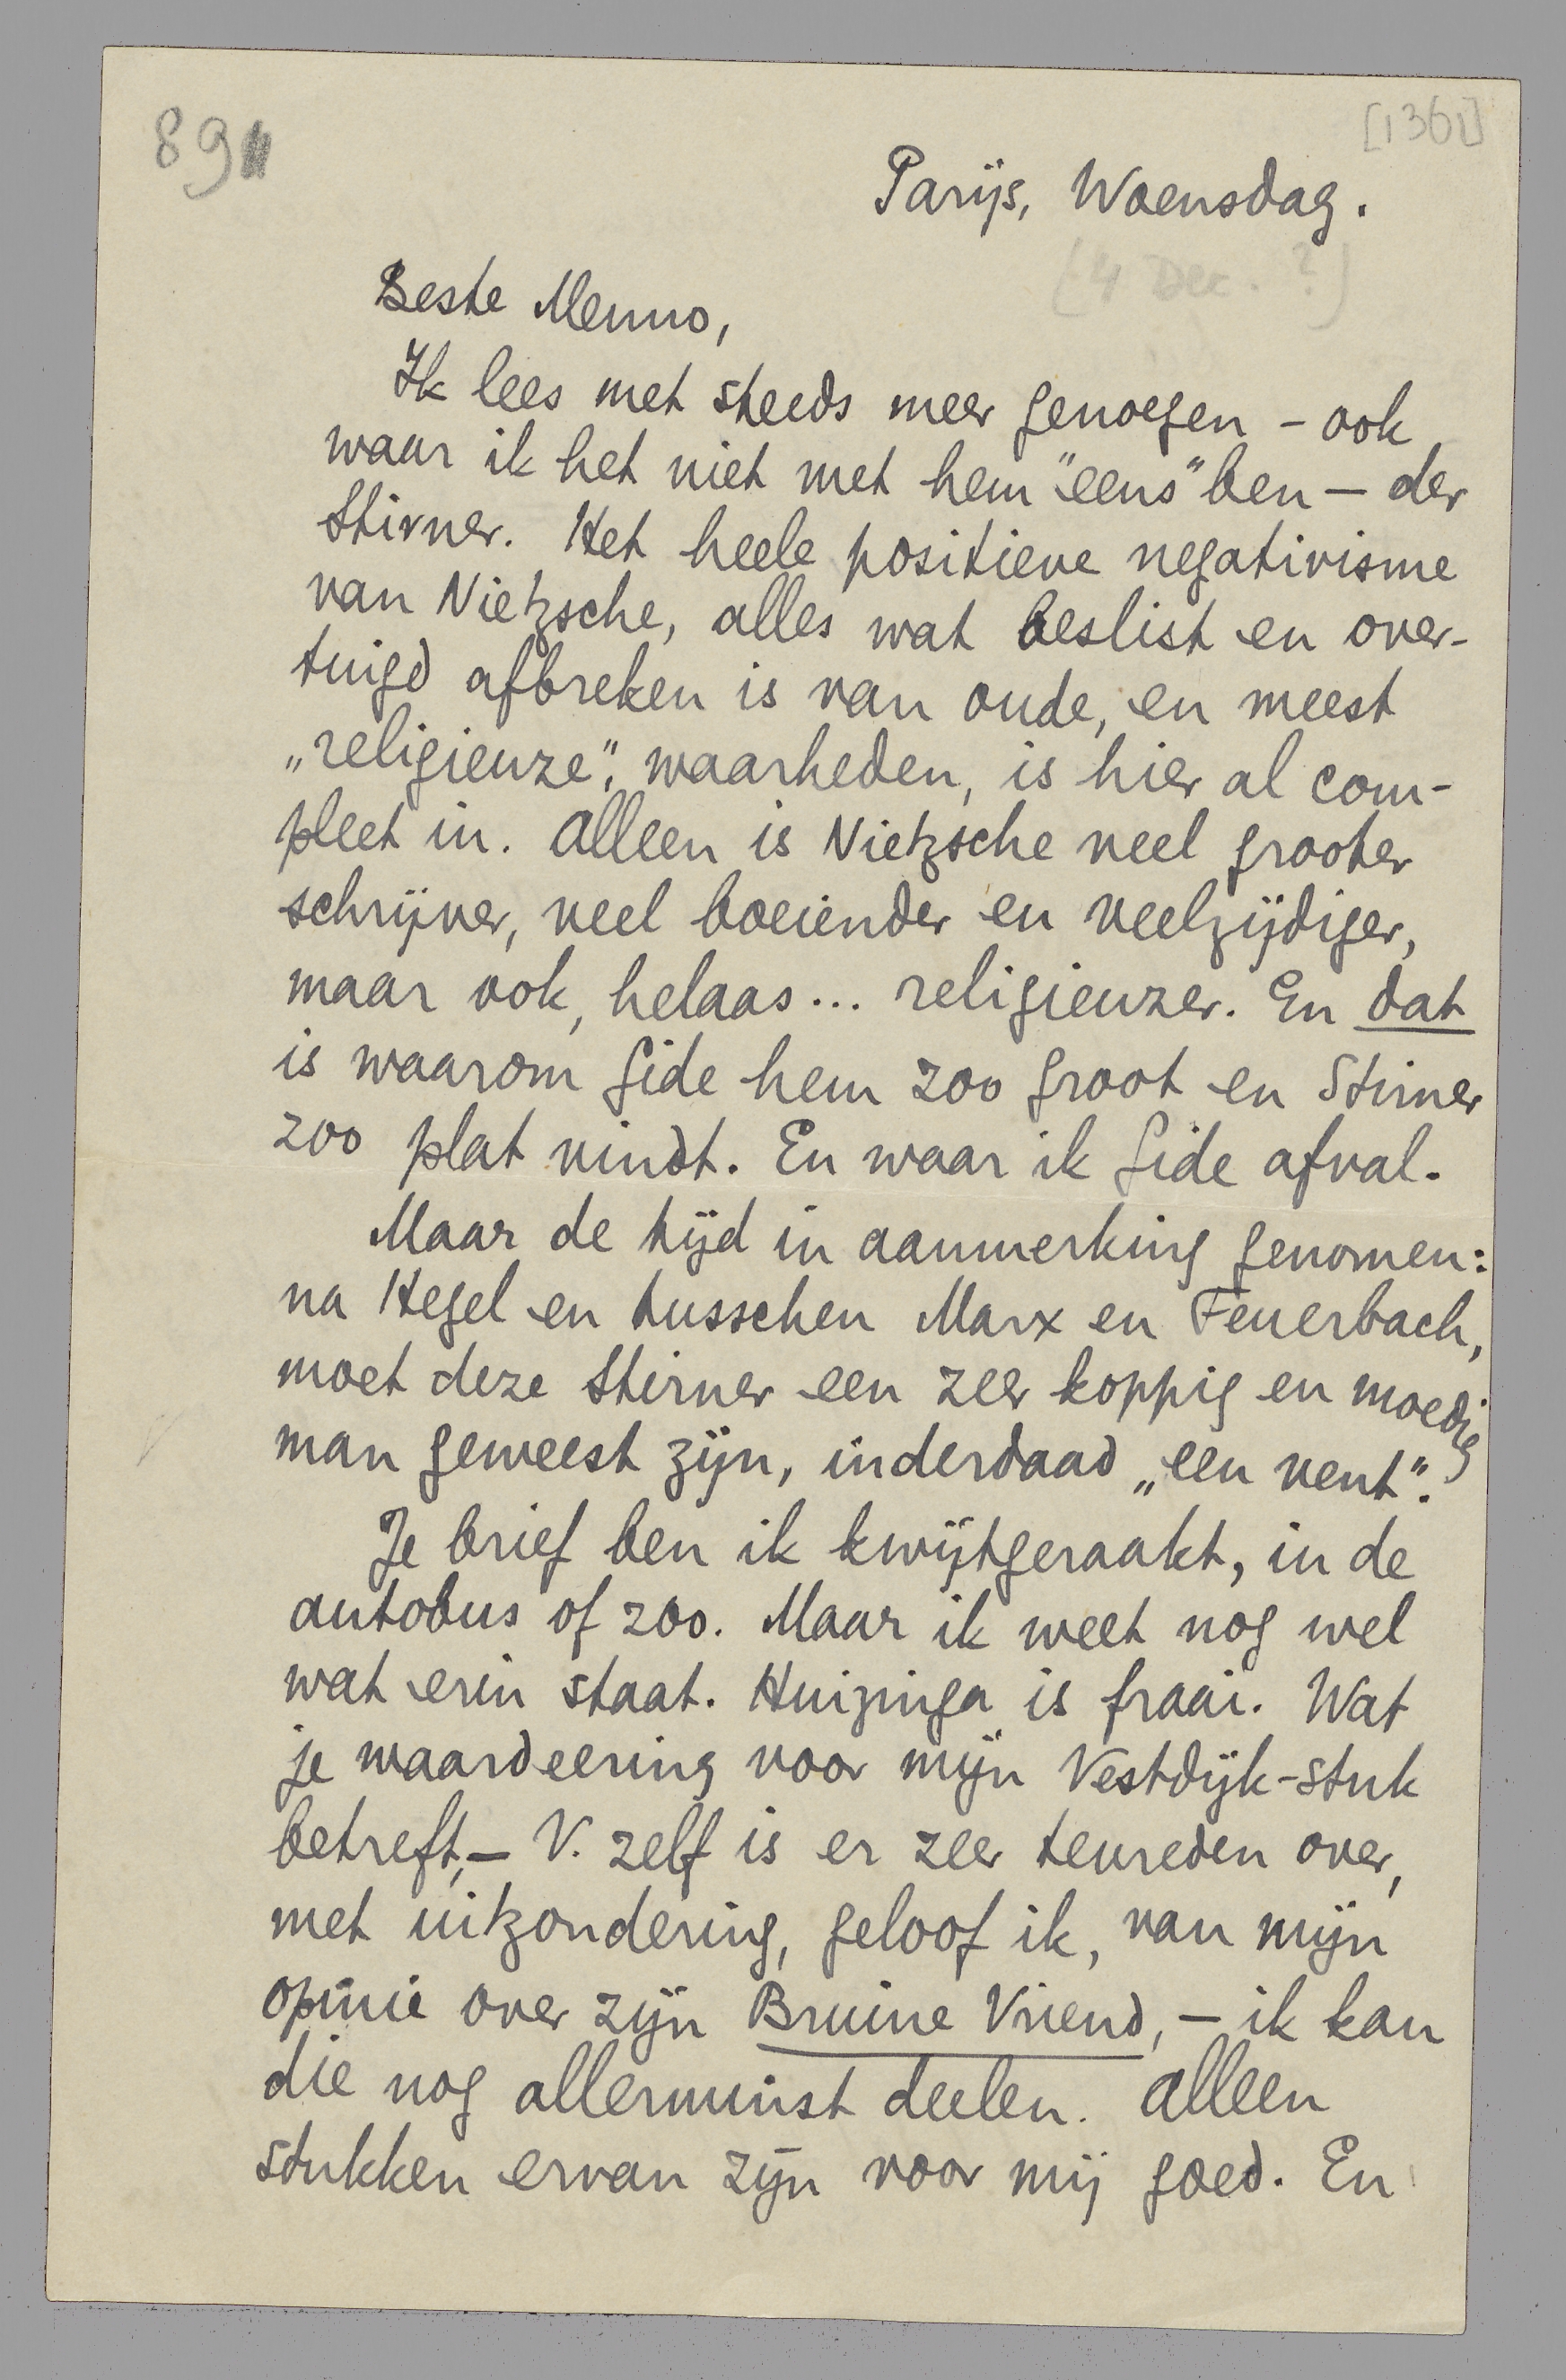 89
[1361]
Parijs, Woensdag.
(4 Dec. ?)
Beste Menno,
Ik lees met steeds meer genoegen - ook
waar ik het niet met hem "eens" ben - der
Stirner. Het heele positieve negativisme
van Nietzsche, alles wat beslist en over-
tuigd afbreken is van oude, en meest
„religieuze", waarheden, is hier al com-
pleet in. Alleen is Nietzsche veel grooter
schrijver, veel boeiender en veelzijdiger,
maar ook, helaas... religieuzer. En dat
is waarom Gide hem zoo groot en Stirner
zoo plat vindt. En waar ik Gide afval.
Maar de tijd in aanmerking genomen:
na Hegel en tusschen Marx en Feuerbach,
moet deze Stirner een zeer koppig en moedig
man geweest zijn, inderdaad „een vent".
Je brief ben ik kwijtgeraakt, in de
autobus of zoo. Maar ik weet nog wel
wat erin staat. Huizinga is fraai. Wat
je waardeering voor mijn Vestdijk-stuk
betreft, - V. zelf is er zeer tevreden over,
met uitzondering, geloof ik, van mijn
opinie over zijn Bruine Vriend, - ik kan
die nog allerminst deelen. Alleen
stukken ervan zijn voor mij goed. En